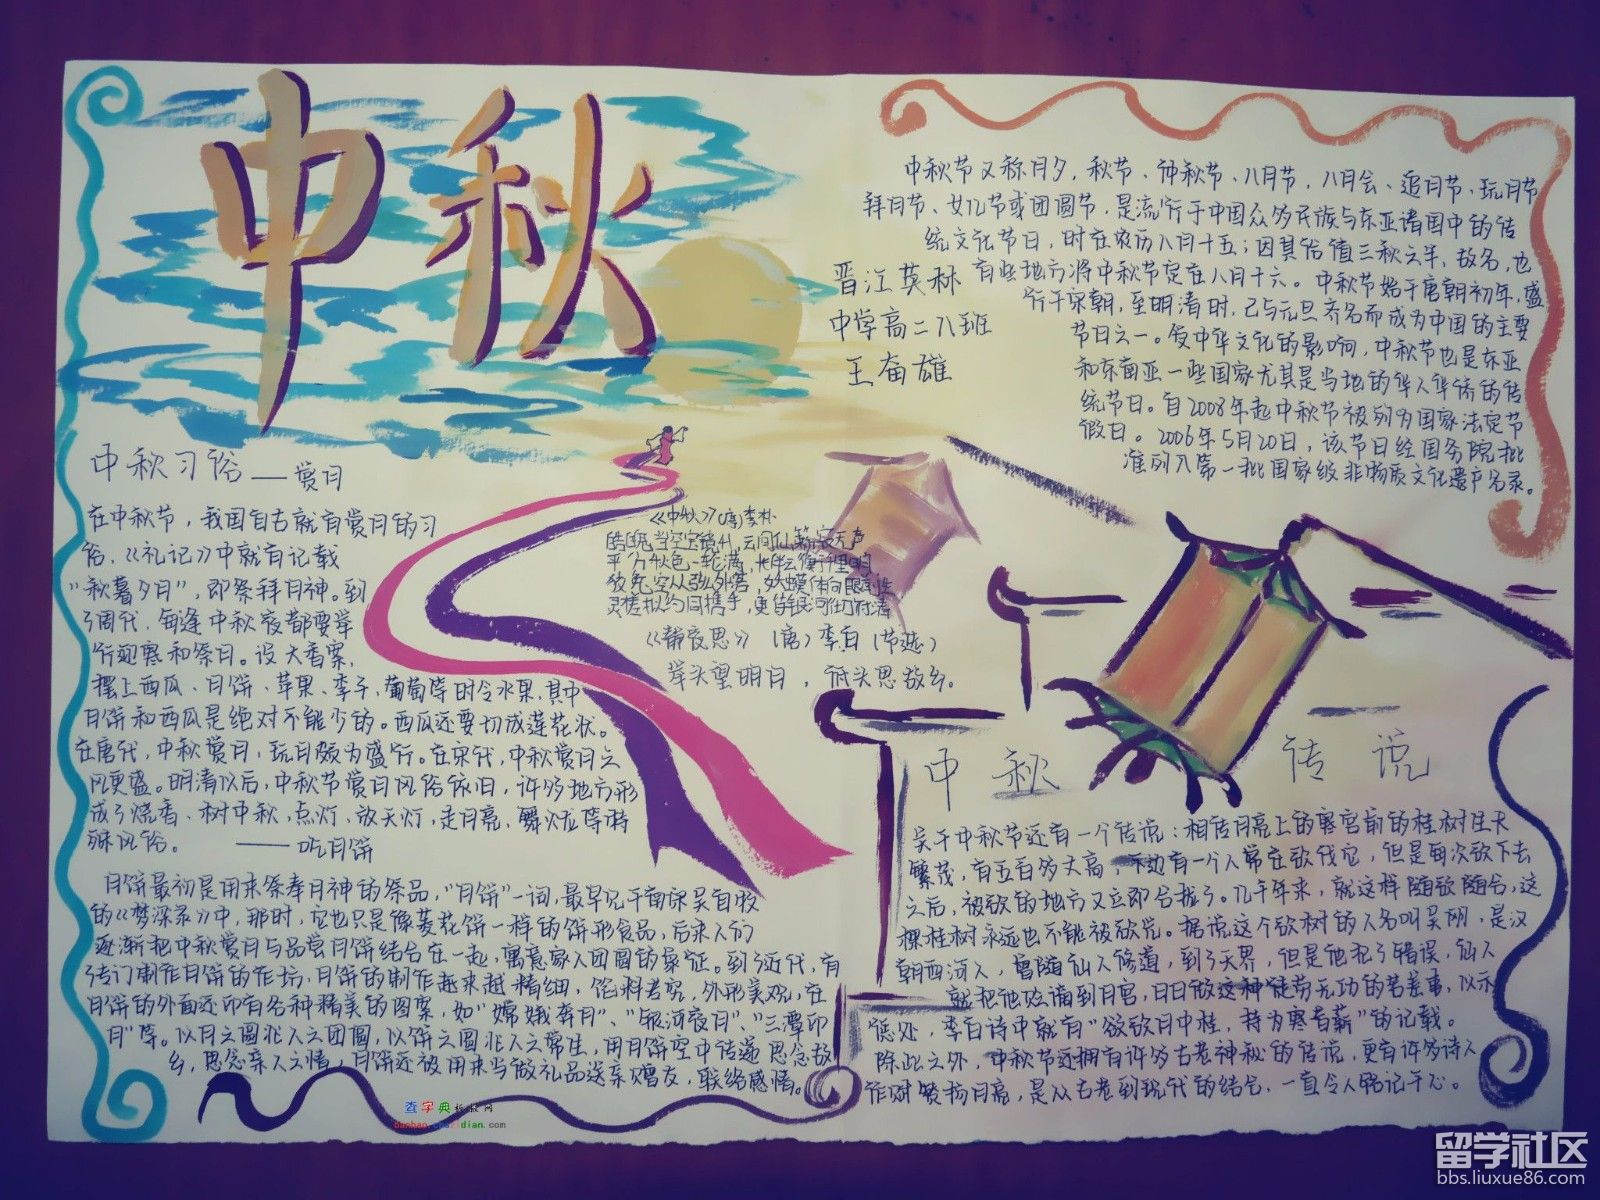 中秋
中秋节又称月夕，秋节、仲秋节、八月节，八月会、追月节、玩月节
拜月节、女儿节或团圆节，是流行于中国众多民族与东亚诸国中的传
统文化节日，时在农历八月十五；因其恰值三秋之半，故名，也
有些地方将中秋节定在八月十六。中秋节始于唐朝初年，盛
行于宋朝，至明清时，已与元旦齐名而成为中国的主要
节日之一。受中华文化的影响，中秋节也是东亚
和东南亚一些国家尤其是当地的华人华侨的传
统节日。自2008年起中秋节被列为国家法定节
假日。2006年5月20日，该节日经国务院批
准列入第一批国家级非物质文化遗产名录。
晋江英林
中学高二八班
王奋雄
中秋习俗——赏月
在中秋节，我国自古就有赏月的习
俗，《礼记》中就有记载
“秋暮夕月”，即祭拜月神。到
了周代，每逢中秋夜都要举
行迎寒和祭月。设大香案，
摆上西瓜、月饼、苹果、李子，葡萄等时令水果，其中
月饼和西瓜是绝对不能少的。西瓜还要切成莲花状。
在唐代，中秋赏月，玩月颇为盛行。在宋代，中秋赏月之
风更盛。明清以后，中秋节赏月风俗依旧，许多地方形
成了烧香、树中秋，点灯、放天灯，走月亮，舞火龙等特
殊风俗。——吃月饼
月饼最初是用来祭奉月神的祭品，“月饼”一词，最早见于南宋吴自牧
的《梦梁录》中，那时，它也只是像菱花饼一样的饼形食品，后来人们
逐渐把中秋赏月与品尝月饼结合在一起，寓意家人团圆的象征。到了近代，有
了专门制作月饼的作坊，月饼的制作越来越精细，馅料考究，外形美观，在
月饼的外面还印有各种精美的图案，如“嫦娥奔月”、“银河夜月”、“三潭印
月”等。以月之圆兆人之团圆，以饼之圆兆人之常生，用月饼寄中传递思念故
乡，思念亲人之情，月饼还被用来当做礼品送亲赠友，联络感情。
《中秋》（唐）李朴
皓魄当空宝镜升，云间仙籁寂无声
平分秋色一轮满，长伴云衢千里明
狡兔空从弦外落，妖蟆休向眼前生
灵槎拟约同携手，更待银河彻底清
《静夜思》（唐）李白（节选）
举头望明月，低头思故乡。
中秋传说
关于中秋节还有一个传说：相传月亮上的寒宫前的桂树生长
繁茂，有五百多丈高，下边有一个人常在砍伐它，但是每次砍下去
之后，被砍的地方又立即合拢了。几千年来，就这样随砍随合，这
棵桂树永远也不能被砍光。据说这个砍树的人名叫吴刚，是汉
朝西河人，曾随仙人修道，到了天界，但是他犯了错误，仙人
就把他贬谪到月宫，日日做这种徒劳无功的苦差事，以示
惩处，李白诗中就有“欲砍月中桂，持为寒者薪”的记载。
除此之外，中秋节还拥有许多古老神秘的传说，更有许多诗人
作对赞扬月亮，是从古老到现代的结合，一直令人铭记于心。
查字典
留学社区
bbs.liuxue86.com